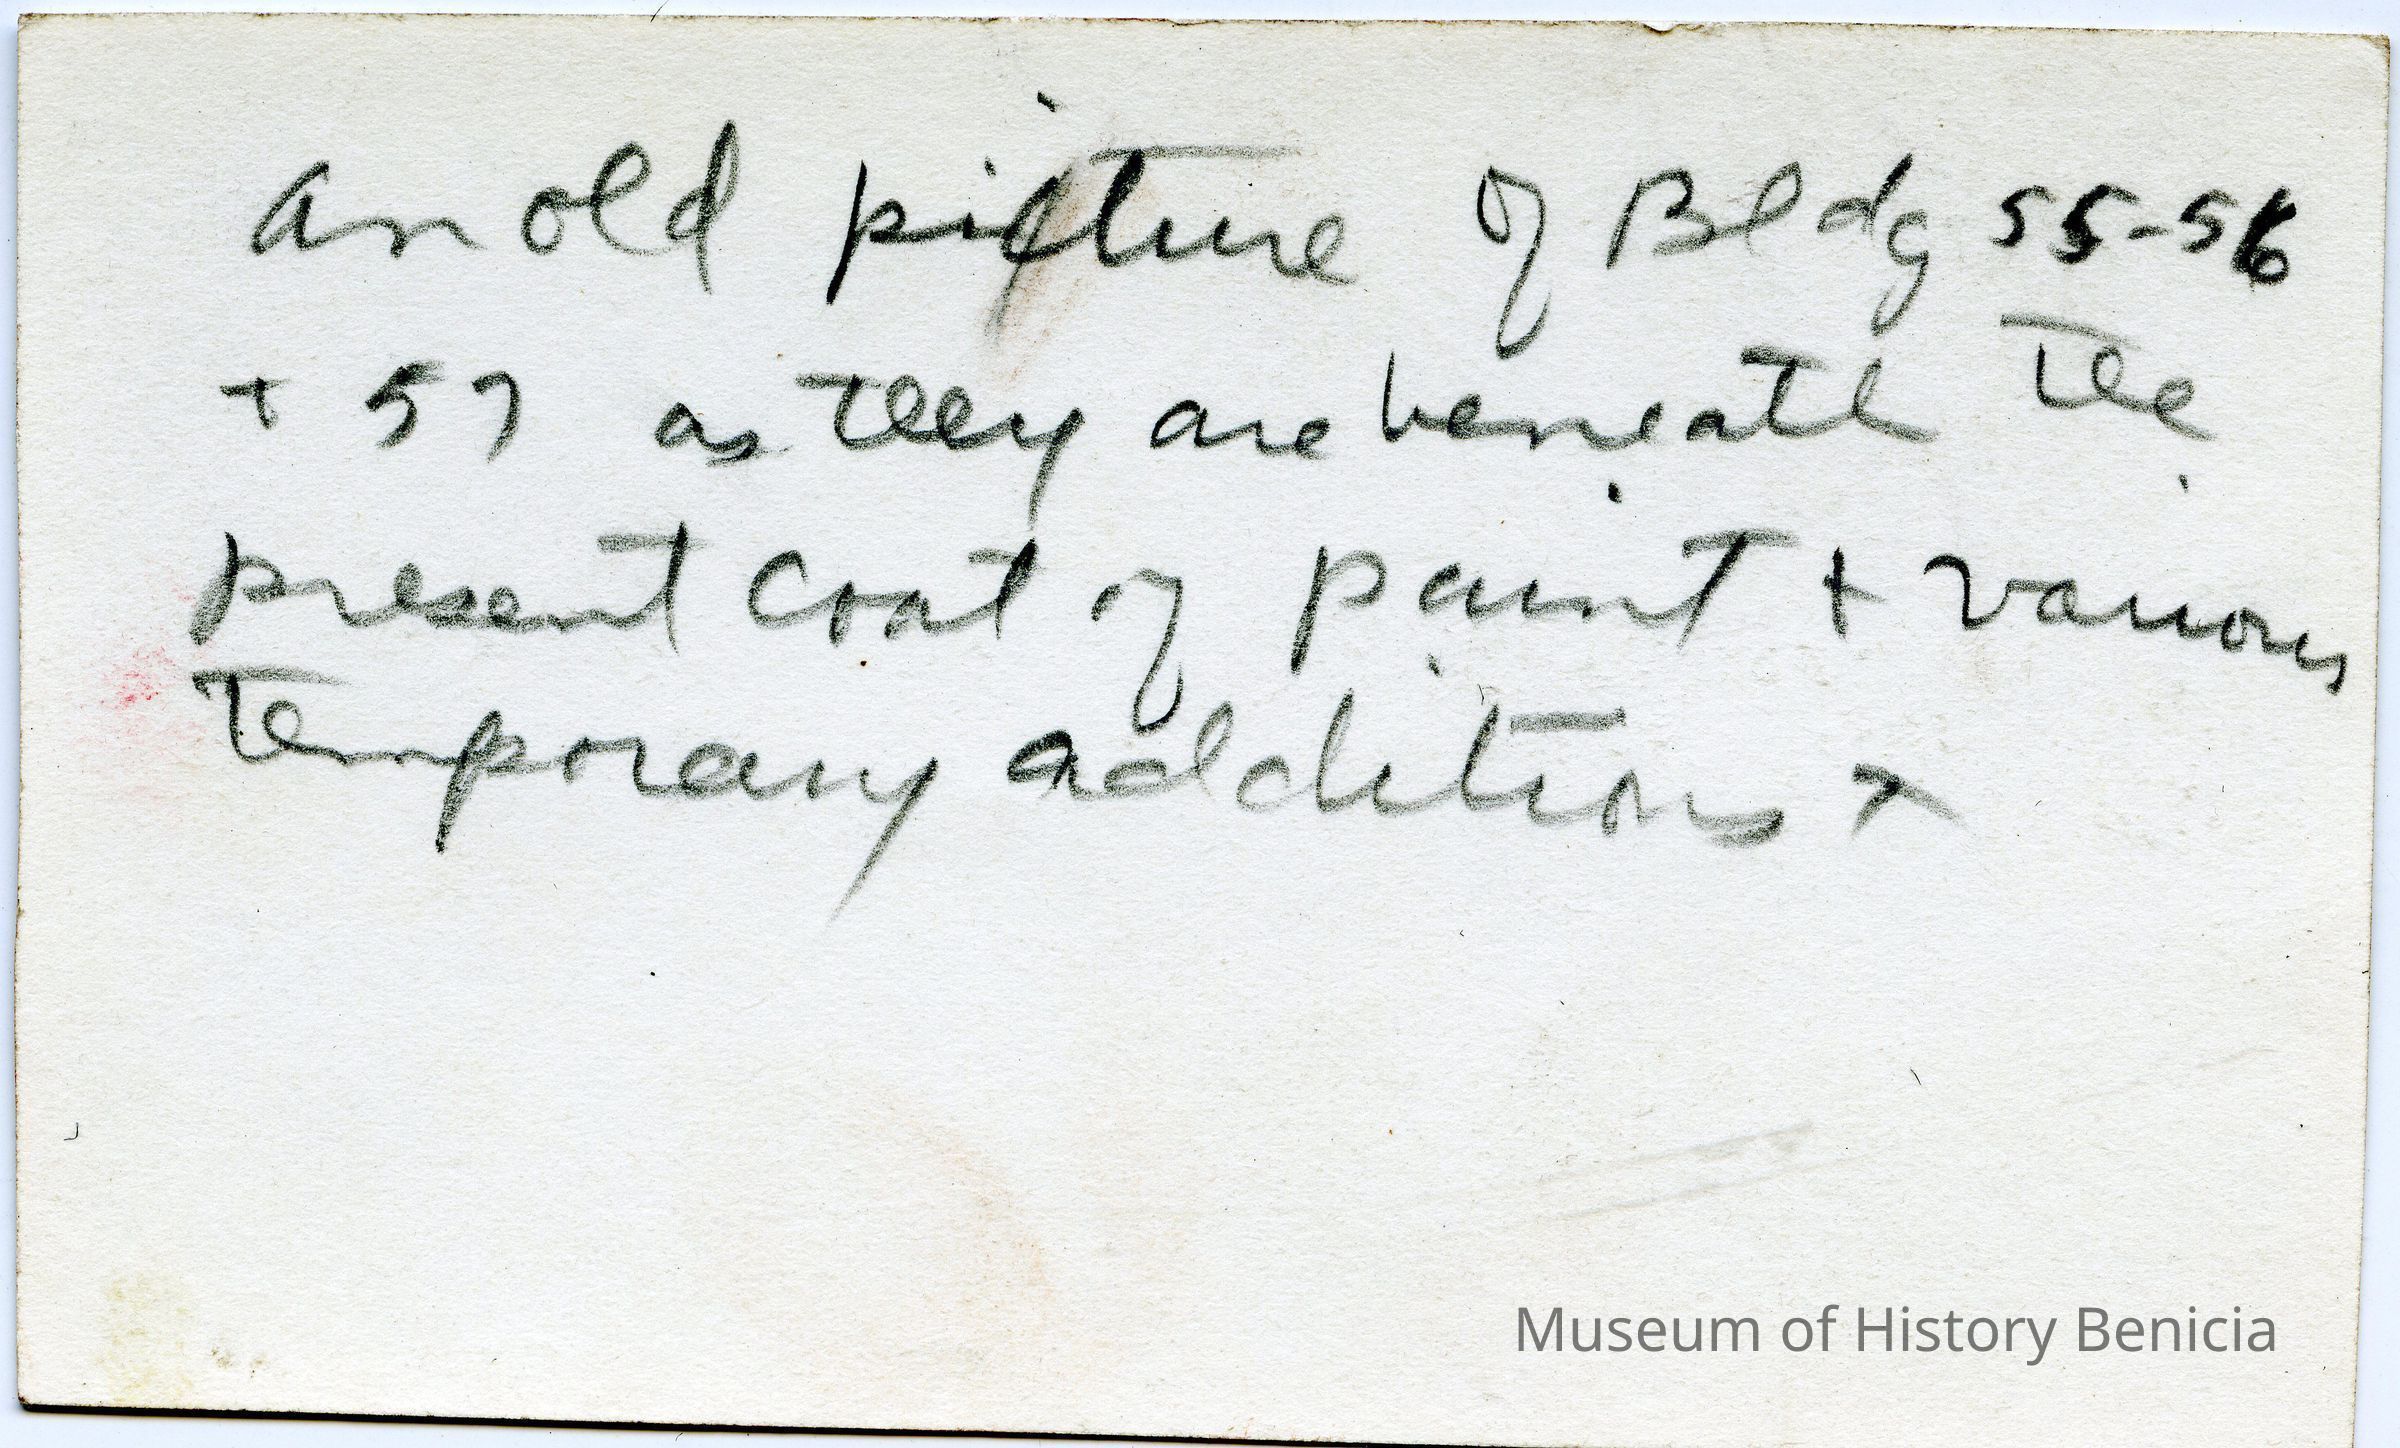 An old picture of Bldg 55-56
+ 57 as they are beneath the
present coat of paint + various
temporary additions x
Museum of History Benicia